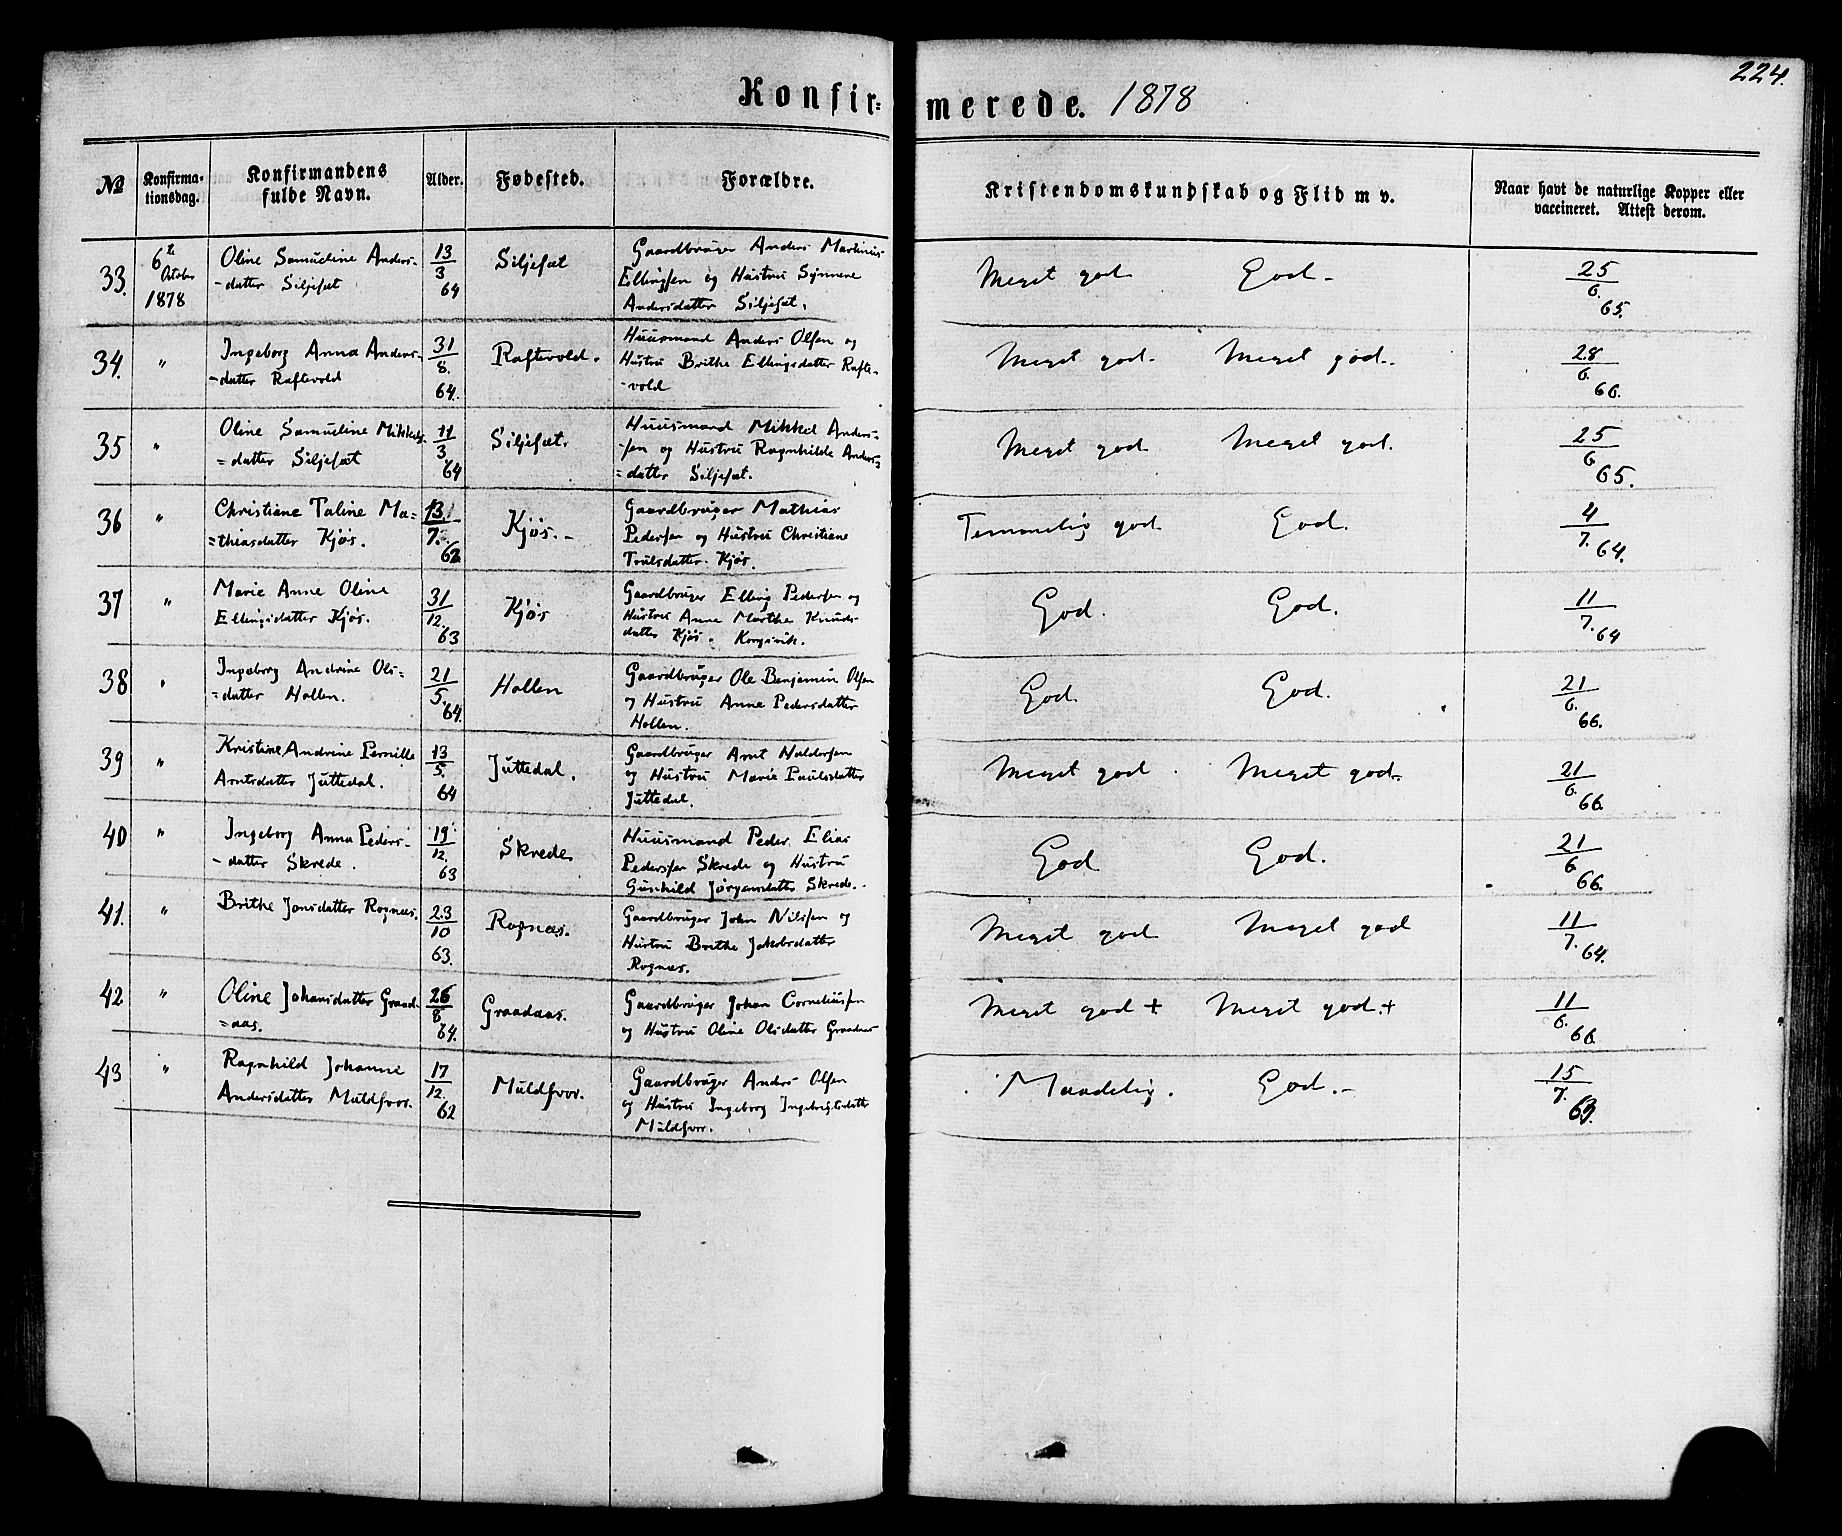 224.
Konfir- merede. 1878
No Konfirmationsdag. Konfirmandens fulde Navn. Alder. Fødested. Forældre. Kristendomskundskab og Flid m v. Naar havt de naturlige Kopper eller vaccineret. Attest derom.
33. 6te October 1878
Oline Samueline Anders-
-datter Siljesæt
13/3 64
Siljesæt
Gaardbruger Anders Martinus
Ellingsen og Hustru Synneve
Andersdatter Siljesæt.
Meget god God -
25/6. 65.
34. "
Ingeborg Anna Anders-
-datter Raftevold
31/8. 64.
Raftevold.
Huusmand Anders Olsen og
Hustru Brithe Ellingsdatter Rafte-
-vold
Meget god. Meget god.
28/6. 66.
35 "
Oline Samueline Mikkels-
=datter Siljesæt
11/3. 64
Siljesæt.
Huusmand Mikkel Anders-
-sen og Hustru Ragnhilde Anders=
=datter Siljesæt.
Meget god Meget god.
25/6 65.
36 "
Christiane Taline Ma=
=thiasdatter Kjøs.
13./7. 62
Kjøs. -
Gaardbruger Mathias
Pedersen og Hustru Christiane
Trulsdatter Kjøs.
Temmelig god God.
4/7. 64.
37 "
Marie Anne Oline
Ellingsdatter Kjøs.
31/12. 63
Kjøs
Gaardbruger Elling Pedersen og
Hustru Anne Marthe Knuds-
datter Kjøs. Korgsvik.
God. God.
11/7. 64
38 "
Ingeborg Andrine Ols=
=datter Hollen.
21/5. 64.
Hollen
Gaardbruger Ole Benjamin Olsen
og Hustru Anne Pedersdatter
Hollen.
God. God.
21/6. 66.
39 "
Kristine Andrine Pernille
Arntsdatter Juttedal.
13/5. 64
Juttedal.
Gaardbruger Arnt Haldorsen
og Hustru Marie Paulsdatter
Juttedal.
Meget god. Meget god.
21/6. 66.
40 "
Ingeborg Anna Peders-
-datter Skrede.
19/12. 63
Skrede
Huusmand Peder Elias
Pedersen Skrede og Hustru
Gunhild Jørgensdatter Skrede.
God God.
21/6 66.
41. "
Brithe Jonsdatter Rognæs.
23/10 63.
Rognæs.
Gaardbruger John Nilsen og
Hustru Brithe Jakobsdatter
Rognæs.
Meget god Meget god
11/7. 64.
42 "
Oline Johansdatter Graad-
=aas.
26/8 64.
Graadaas.
Gaardbruger Johan Corneliussen
og Hustru Oline Olsdatter Graadaas
Meget god + Meget god. +
11/6. 66
43 "
Ragnhild Johanne
Andersdatter Muldsvor.
17/12. 62
Muldsvor.
Gaardbruger Anders Olsen
og Hustru Ingeborg Ingebrigtsdatter
Muldsvor.
Maadelig. God. -
15/7. 63.